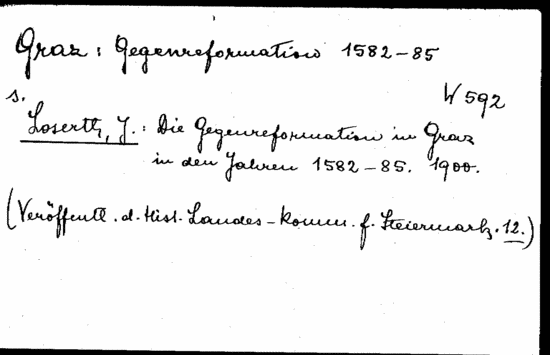 Graz: Gegenreformation 1582-85
W 592
s.
Loserth, J.: Die Gegenreformation in Graz
in den Jahren 1582-85. 1900.
(Veröffentl. d. Hist. Landes-Komm. f. Steiermark. 12.)